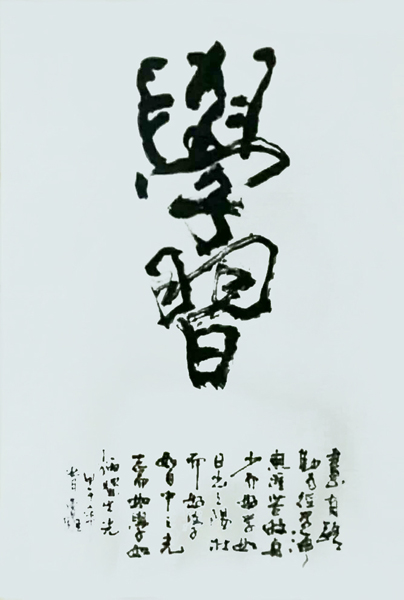 學習
書有路
勤為徑學海
無涯苦作舟
少而好學如
日出之陽壯
而好學
如日中之光
老而好學如
炳燭之光
甲午